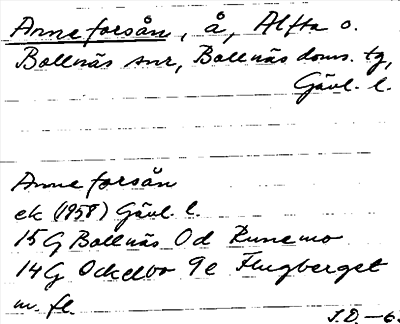 Anneforsån, å, Alfta o.
Bollnäs snr, Bollnäs doms. tg,
Gävl. l.
Anneforsån
ek (1958) Gävl. l.
15G Bollnäs 0d Runemo
14G Ockelbo 9e Flugberget
m. fl.
J.D. —6